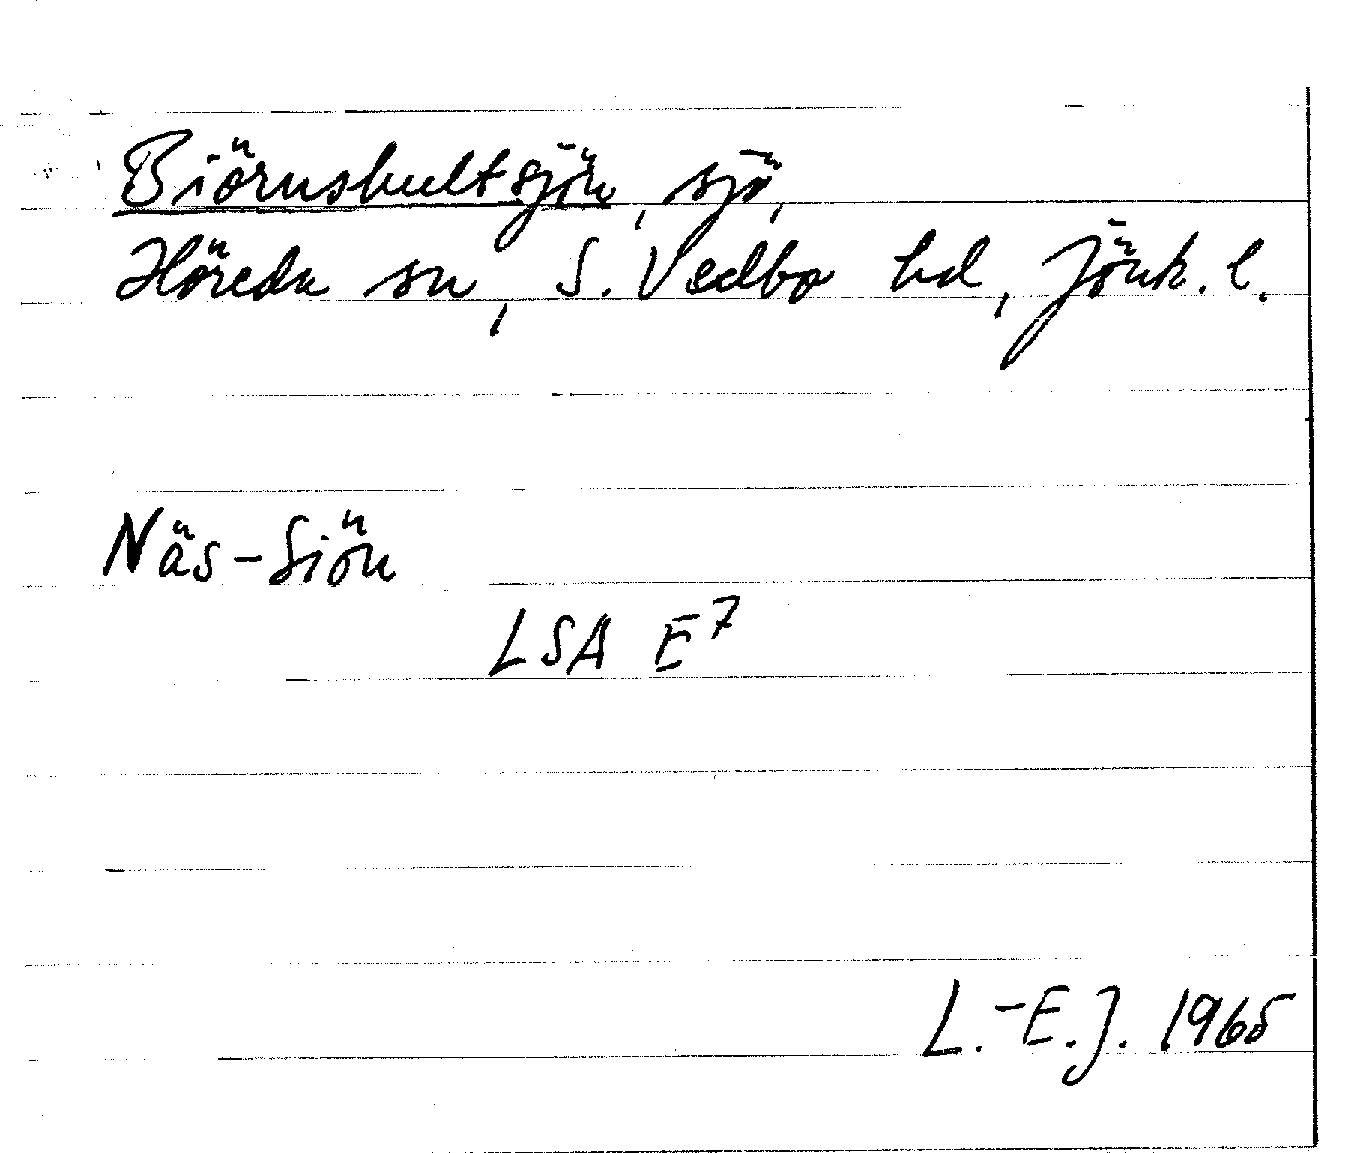 Biörnshultsjön, sjö,
Höreda sn, S. Vedbo hd, Jönk. l.
Näs-Siön
LSA E7
L.-E.J. 1965